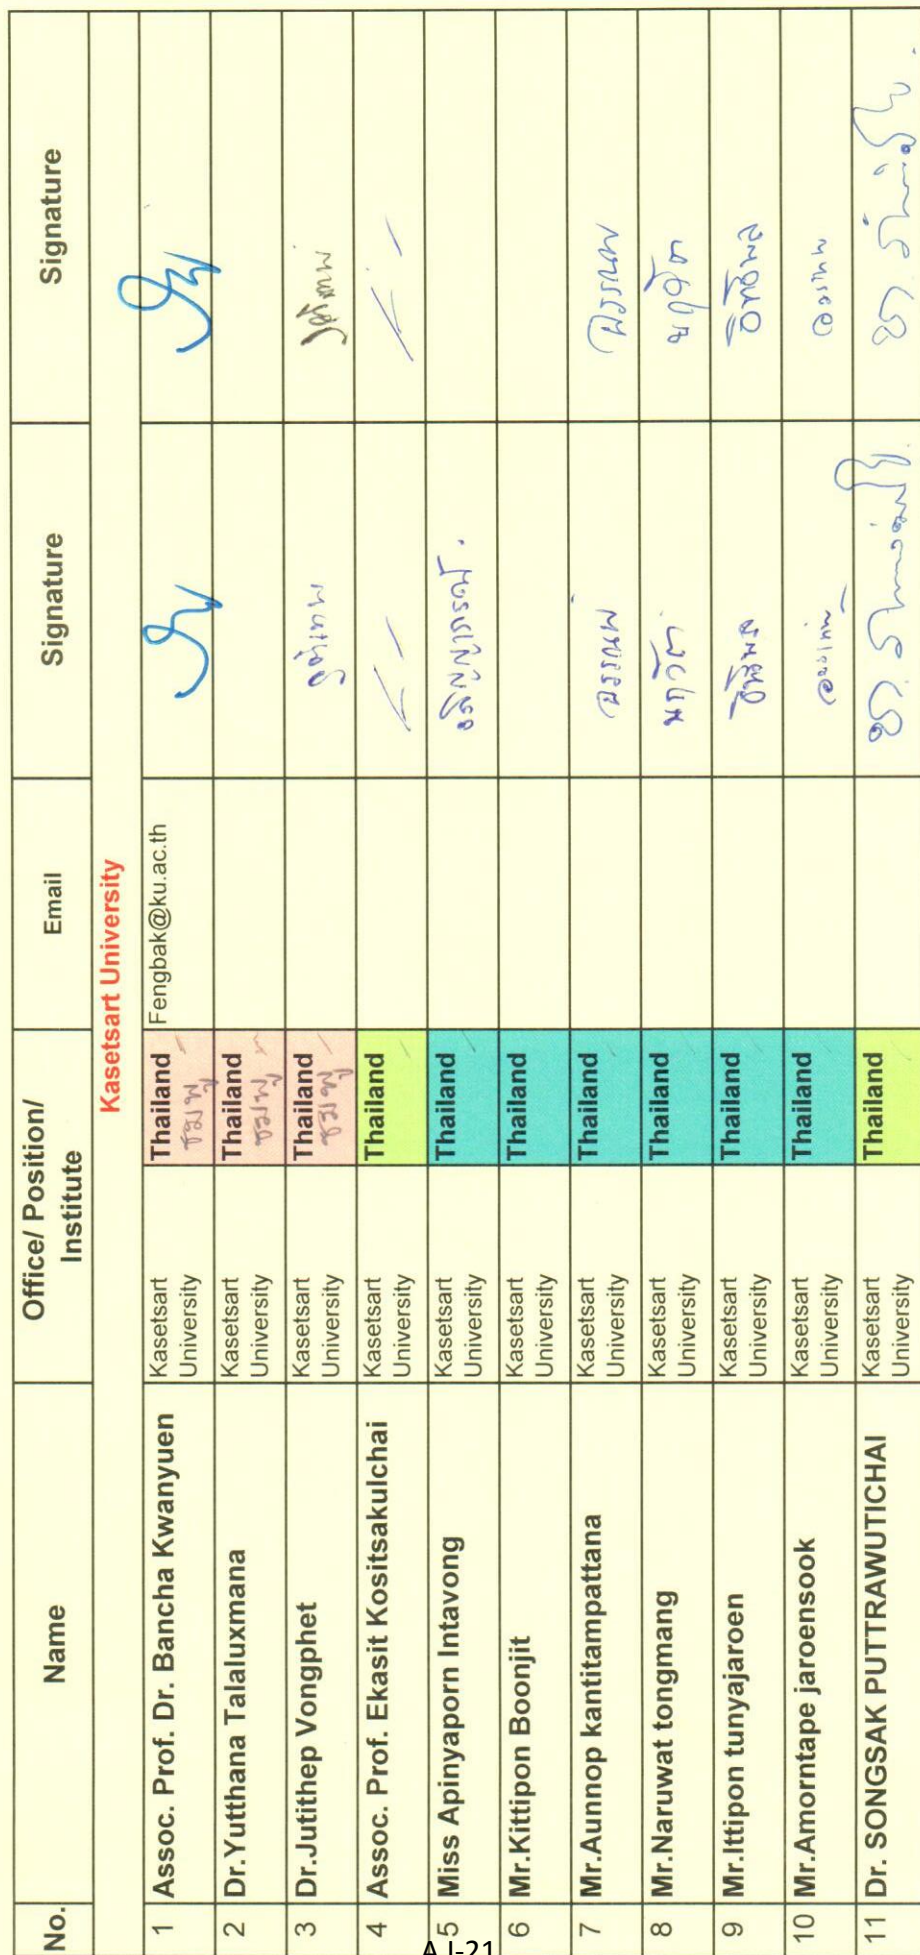 No.
Name
Office/ Position/
Institute
Email
Signature
Signature
Kasetsart University
1
Assoc. Prof. Dr. Bancha Kwanyuen
Kasetsart
University
Thailand
ชมพู
Fengbak@ku.ac.th
2
Dr.Yutthana Talaluxmana
Kasetsart
University
Thailand
ชมพู
3
Dr.Jutithep Vongphet
Kasetsart
University
Thailand
ชมพู
4
Assoc. Prof. Ekasit Kositsakulchai
Kasetsart
University
Thailand
5
Miss Apinyaporn Intavong
Kasetsart
University
Thailand
6
Mr.Kittipon Boonjit
Kasetsart
University
Thailand
7
Mr.Aunnop kantitampattana
Kasetsart
University
Thailand
อรรณพ
อรรณพ
8
Mr.Naruwat tongmang
Kasetsart
University
Thailand
9
Mr.Ittipon tunyajaroen
Kasetsart
University
Thailand
อิทธิพล
อิทธิพล
10
Mr.Amorntape jaroensook
Kasetsart
University
Thailand
11
Dr. SONGSAK PUTTRAWUTICHAI
Kasetsart
University
Thailand
A I-21